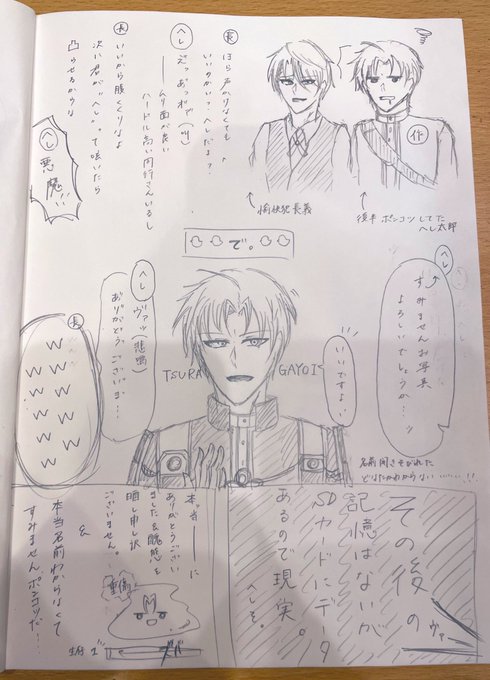 長
ほら声かけなくても
いいのかい？へしだよ？
へし
えっおっおっ
━━ムリ面が良い
ハードル高い同行さんいるし
長
いいから腹くくりなよ
次い君が"へし"って呟いたら
凸らせるからな
へし
悪魔!!
作
↑愉快犯長義
↑後半ポンコツしてた
へし太郎
で。
へし
すみませんお写真
よろしいでしょうか…ッ
いいですよ
TSURA GAYOI
へし
ヴァッ(悲鳴)
ありがとうございま…
長
w w w w w w w w w w w
名前聞きそびれた
どなたかわからない……!!
その後の
記憶はないが
SDカードにデータ
あるので現実。
へしぞ。
ヴァ
本っ当━━に
ありがとうござい
ました&醜態を
晒し申し訳
ございません。
&
本当名前わからなくて
すみませんポンコツだ…
重傷
生存 1